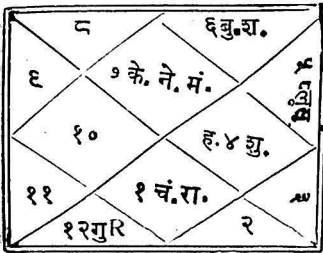 ८
६बु.श.
७ के. ने. मं.
५ प्लू.सू.
९
१०
ह.४ शु.
११
१ चं.रा.
३
१२गुR
२